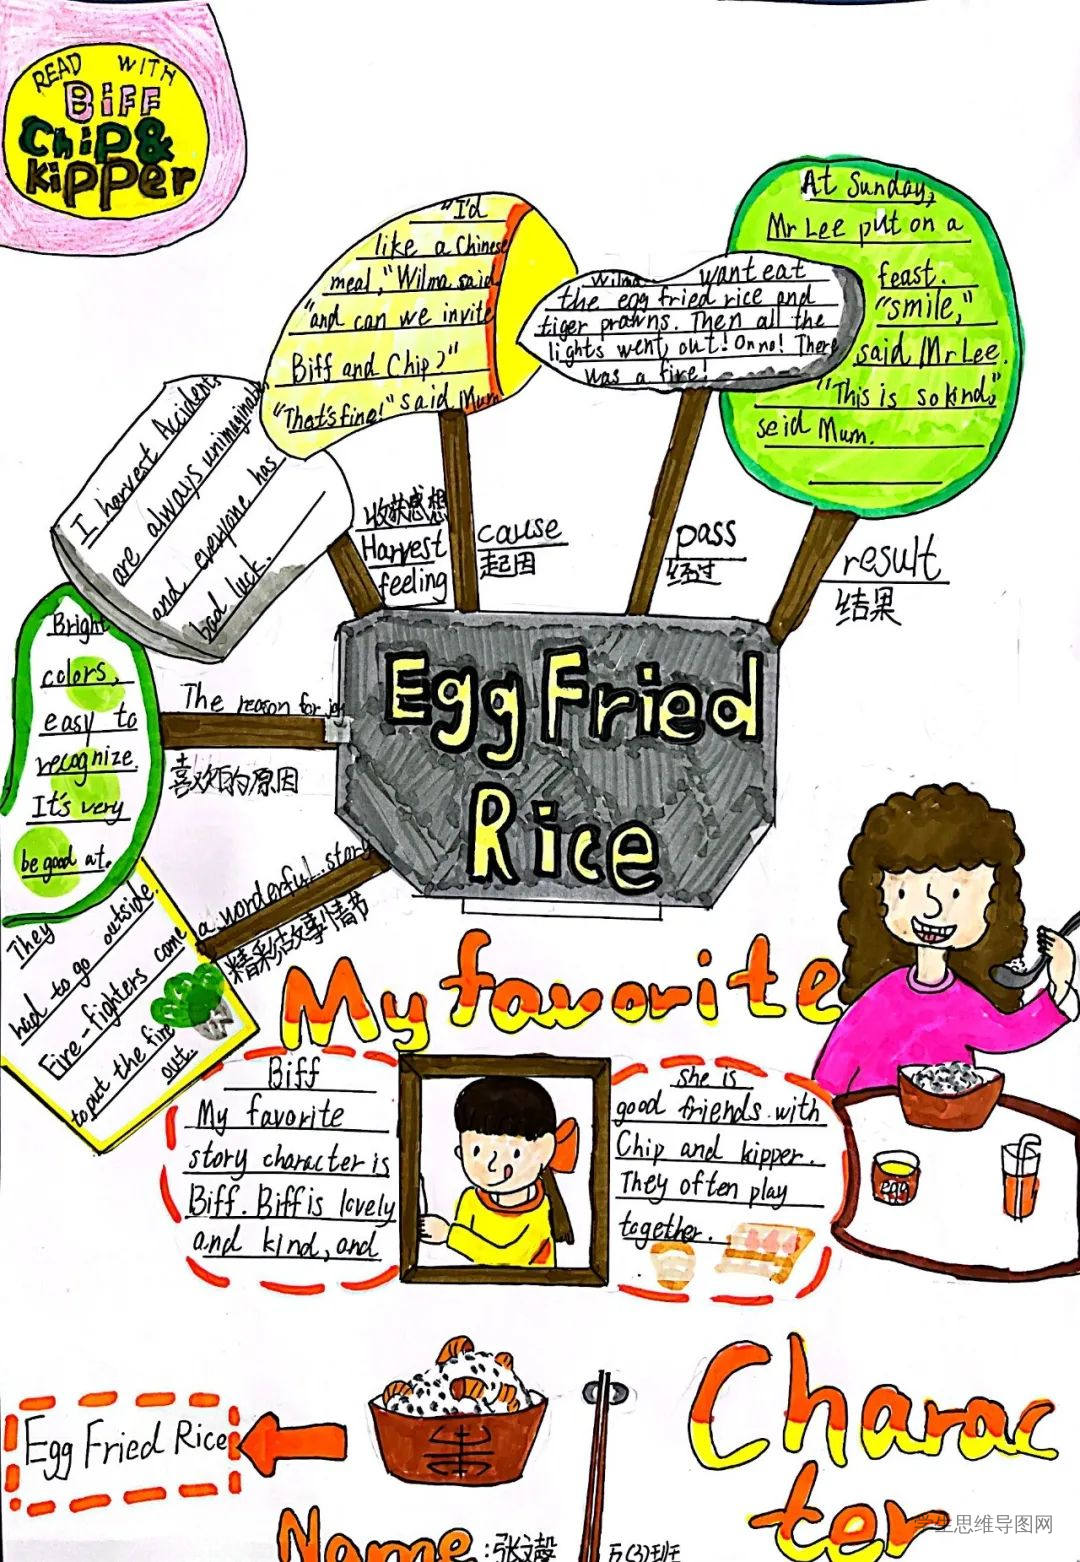 READ WITH
Biff
Chip &
Kipper
"I'd
like a Chinese
meal," Wilma said
"and can we invite
Biff and Chip?"
"That's fine!" said Mum
Wilma want eat
the egg fried rice and
tiger prawns. Then all the
lights went out! On no! There
was a fire!
At Sunday,
Mr Lee put on a
feast.
"smile,"
said Mr Lee.
"This is so kind,"
seid Mum.
I harvest Accidents
are always unimaginable
and everyone has
bad luck.
收获感想
Harvest
feeling
cause
起因
pass
经过
result
结果
Bright
colors,
easy to
recognize.
It's very
be good at.
The reason for joy
喜欢的原因
Egg Fried
Rice
They
had to go outside.
Fire-fighters came
to put the fire
out.
a wonderful story
精彩故事情节
My favorite
Biff
My favorite
story character is
Biff. Biff is lovely
and kind, and
she is
good friends with
Chip and kipper.
They often play
together.
egg
Charac
ter
Egg Fried Rice
Name: 张文馨 五(3)班
学生思维导图网